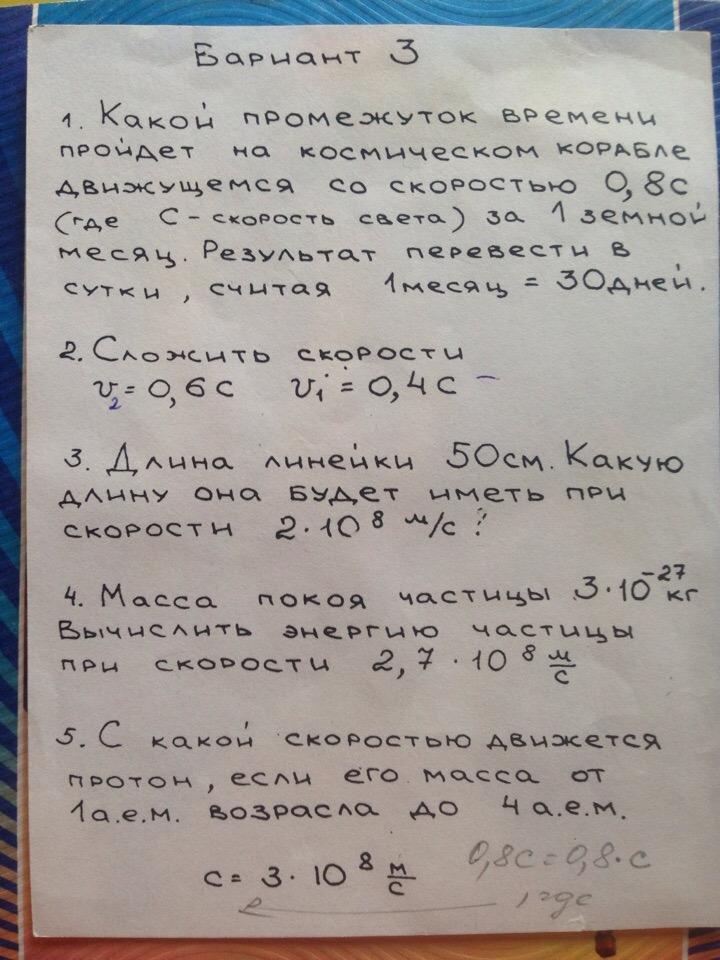 Вариант 3
1. Какой промежуток времени
пройдет на космическом корабле
движущемся со скоростью 0,8с
(где С - скорость света) за 1 земной
месяц. Результат перевести в
сутки, считая 1месяц = 30дней.
2. Сложить скорости
v₂ = 0,6с v₁' = 0,4с
3. Длина линейки 50см. Какую
длину она будет иметь при
скорости 2·10⁸ м/с?
4. Масса покоя частицы 3·10⁻²⁷ кг
Вычислить энергию частицы
при скорости 2,7·10⁸ м/с
5. С какой скоростью движется
протон, если его масса от
1а.е.м. возрасла до 4а.е.м.
с = 3·10⁸ м/с 0,8с = 0,8·с
, где